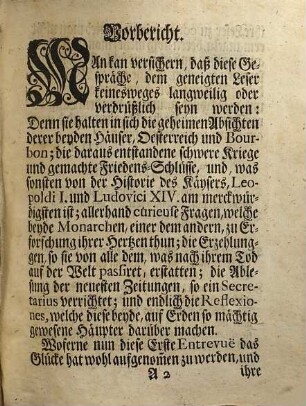 Vorbericht.
MAn kan versichern, daß diese Ge-
spräche, dem geneigten Leser
keinesweges langweilig oder
verdrüßlich seyn werden:
Denn sie halten in sich die geheimen Absichten
derer beyden Häuser, Oesterreich und Bour-
bon; die daraus entstandene schwere Kriege
und gemachte Friedens-Schlüsse, und was
sonsten von der Historie des Käysers, Leo-
poldi I. und Ludovici XIV. am merckwür-
digsten ist; allerhand cürieuse Fragen, welche
beyde Monarchen, einer dem andern, zu Er-
forschung ihrer Hertzen thun; die Erzehlung-
gen, so sie von alle dem, was nach ihrem Tod
auf der Welt passiret, erstatten; die Able-
sung der neuesten Zeitungen, so ein Secre-
tarius verrichtet; und endlich die Reflexio-
nes, welche diese beyde, auf Erden so mächtig
gewesene Häupter darüber machen.
Woferne nun diese Erste Entrevuë das
Glücke hat wohl aufgenom̃en zu werden, und
A 2 ihre